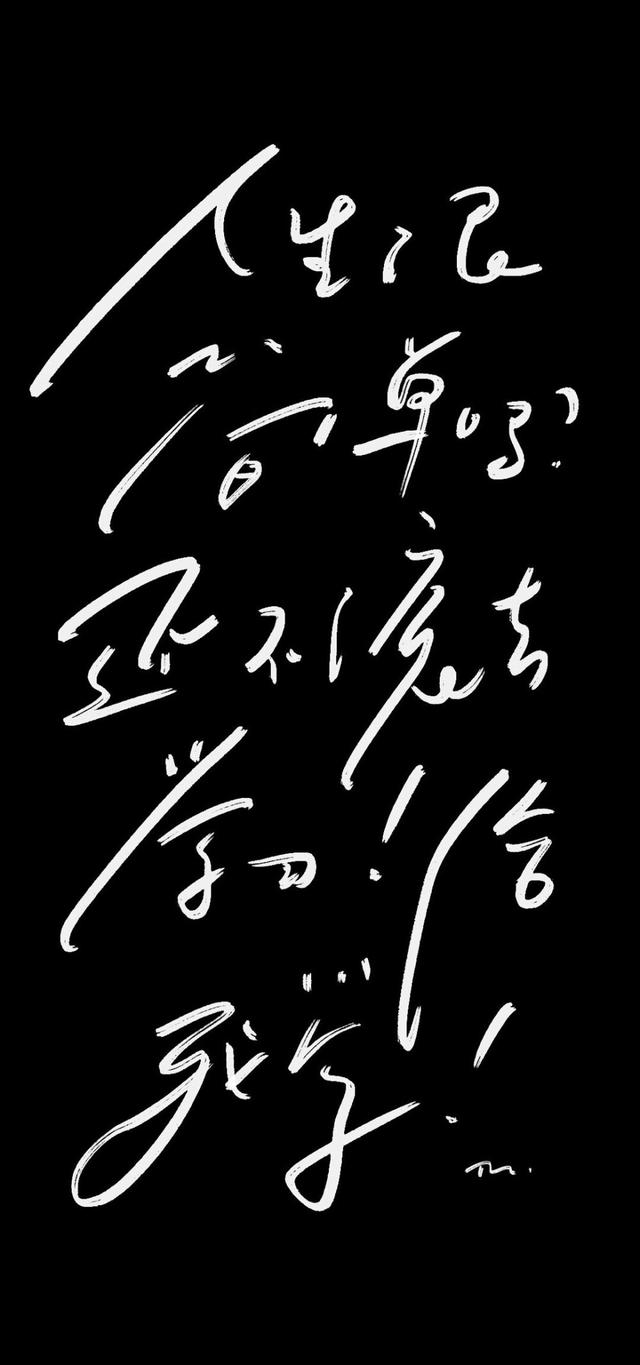 人生很
简单吗?
还不滚去
学习!给
我学!